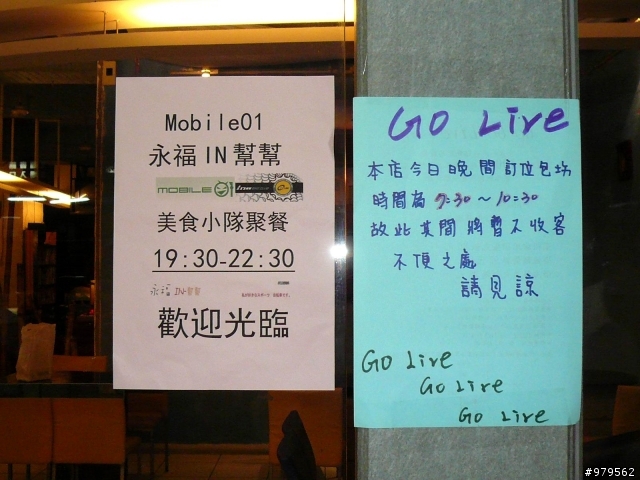 Mobile01
永福 IN 幫幫
MOBILE 01
美食小隊聚餐
19:30-22:30
永福 IN-幫幫
歡迎光臨
Go Live
本店今日晚間訂位包場
時間為 7:30~10:30
故此其間將暫不收客
不便之處
請見諒
Go Live
Go Live
Go Live
#979562